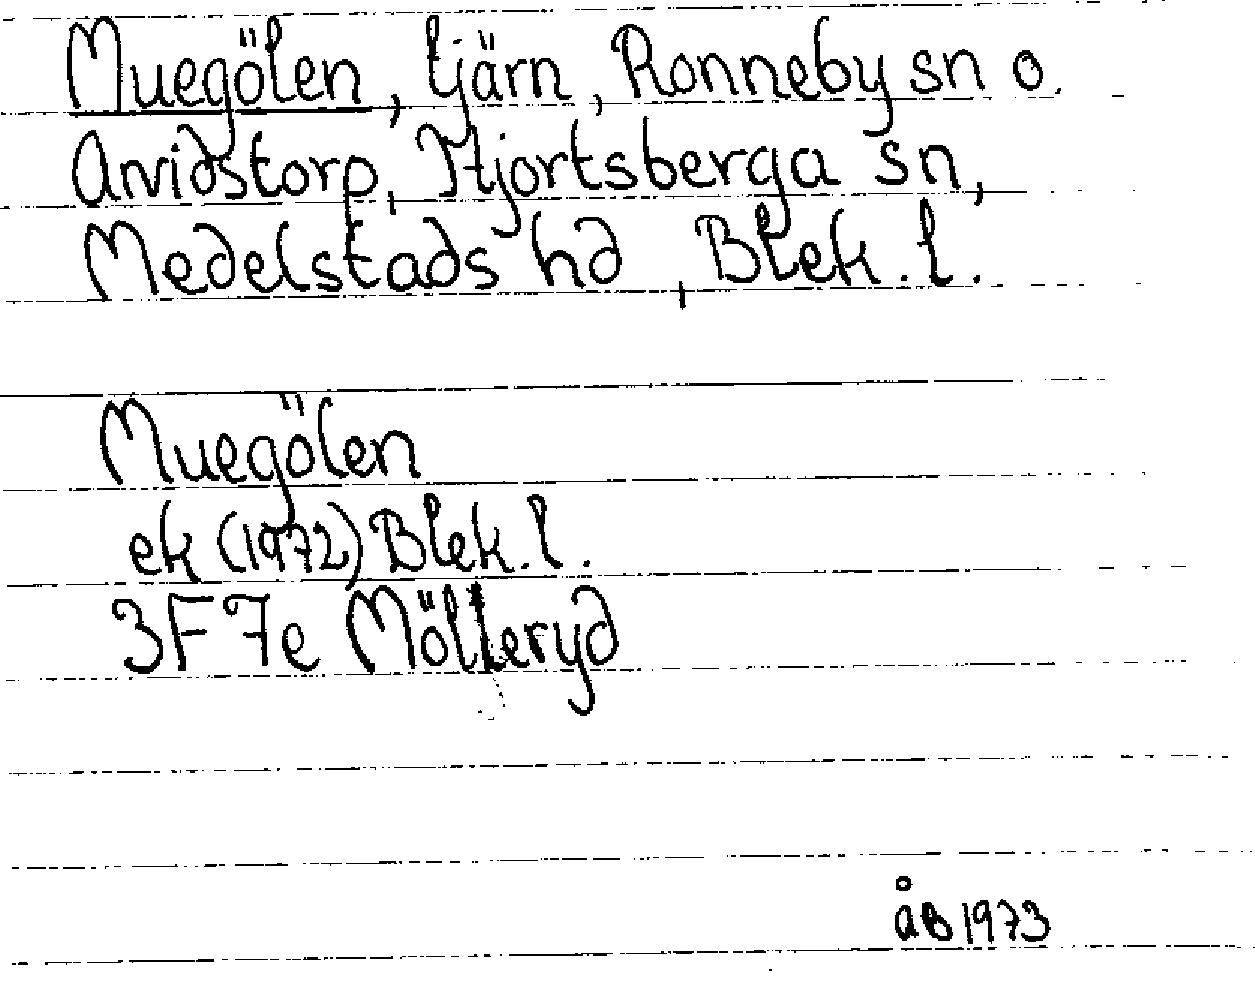 Muegölen, tjärn, Ronneby sn o.
Arvidstorp, Hjortsberga sn,
Medelstads hd, Blek. l.
Muegölen
ek (1972) Blek. l.
3F 7e Mölleryd
åB 1973